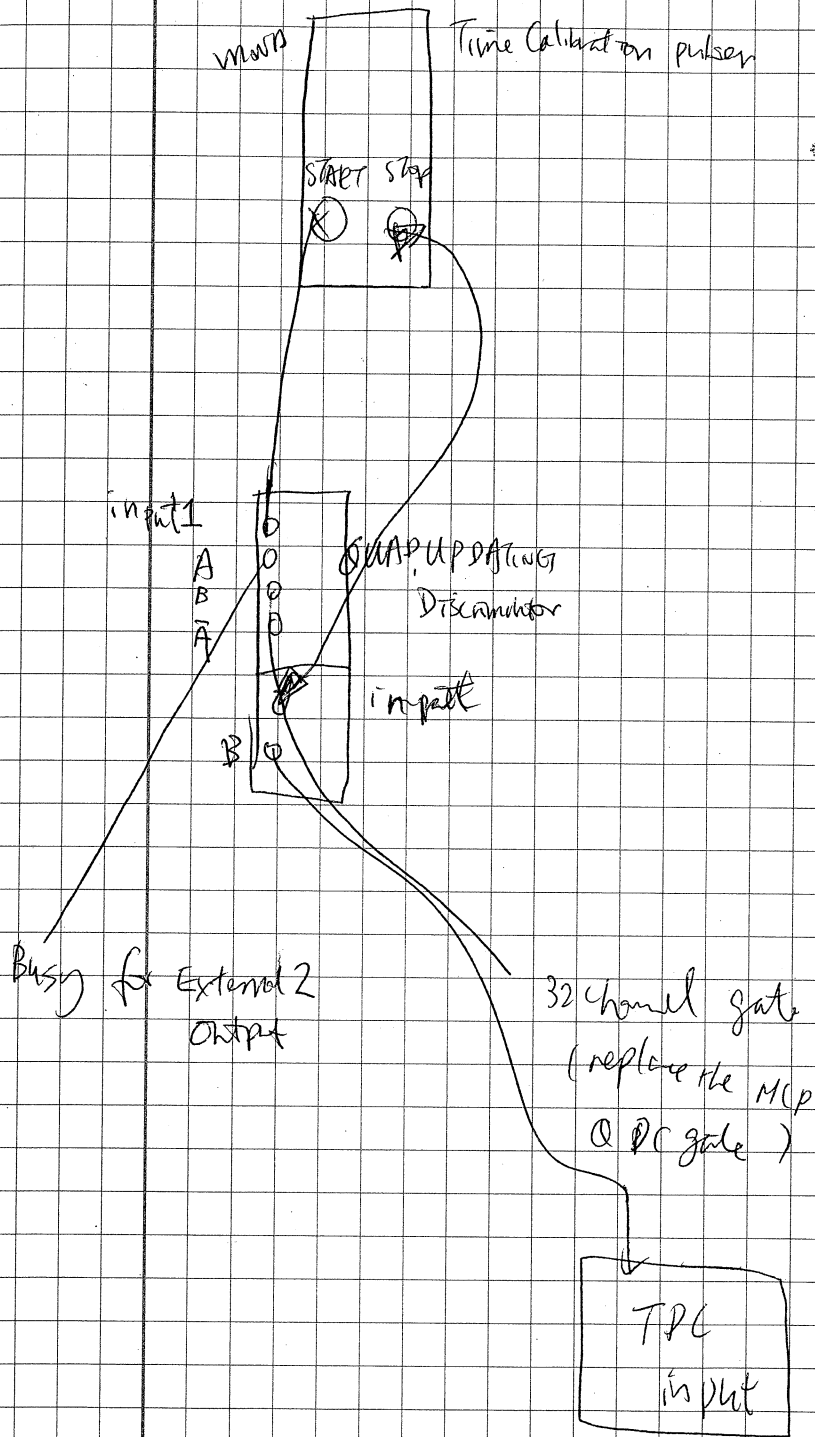 MoNA
Time Calibration pulser
START Stop
input1
A
B
Ā
QUAD UPDATING
Discriminator
input
B
Busy for External 2
Output
32 channel gate
(replace the MCP
QDC gate)
TDC
input